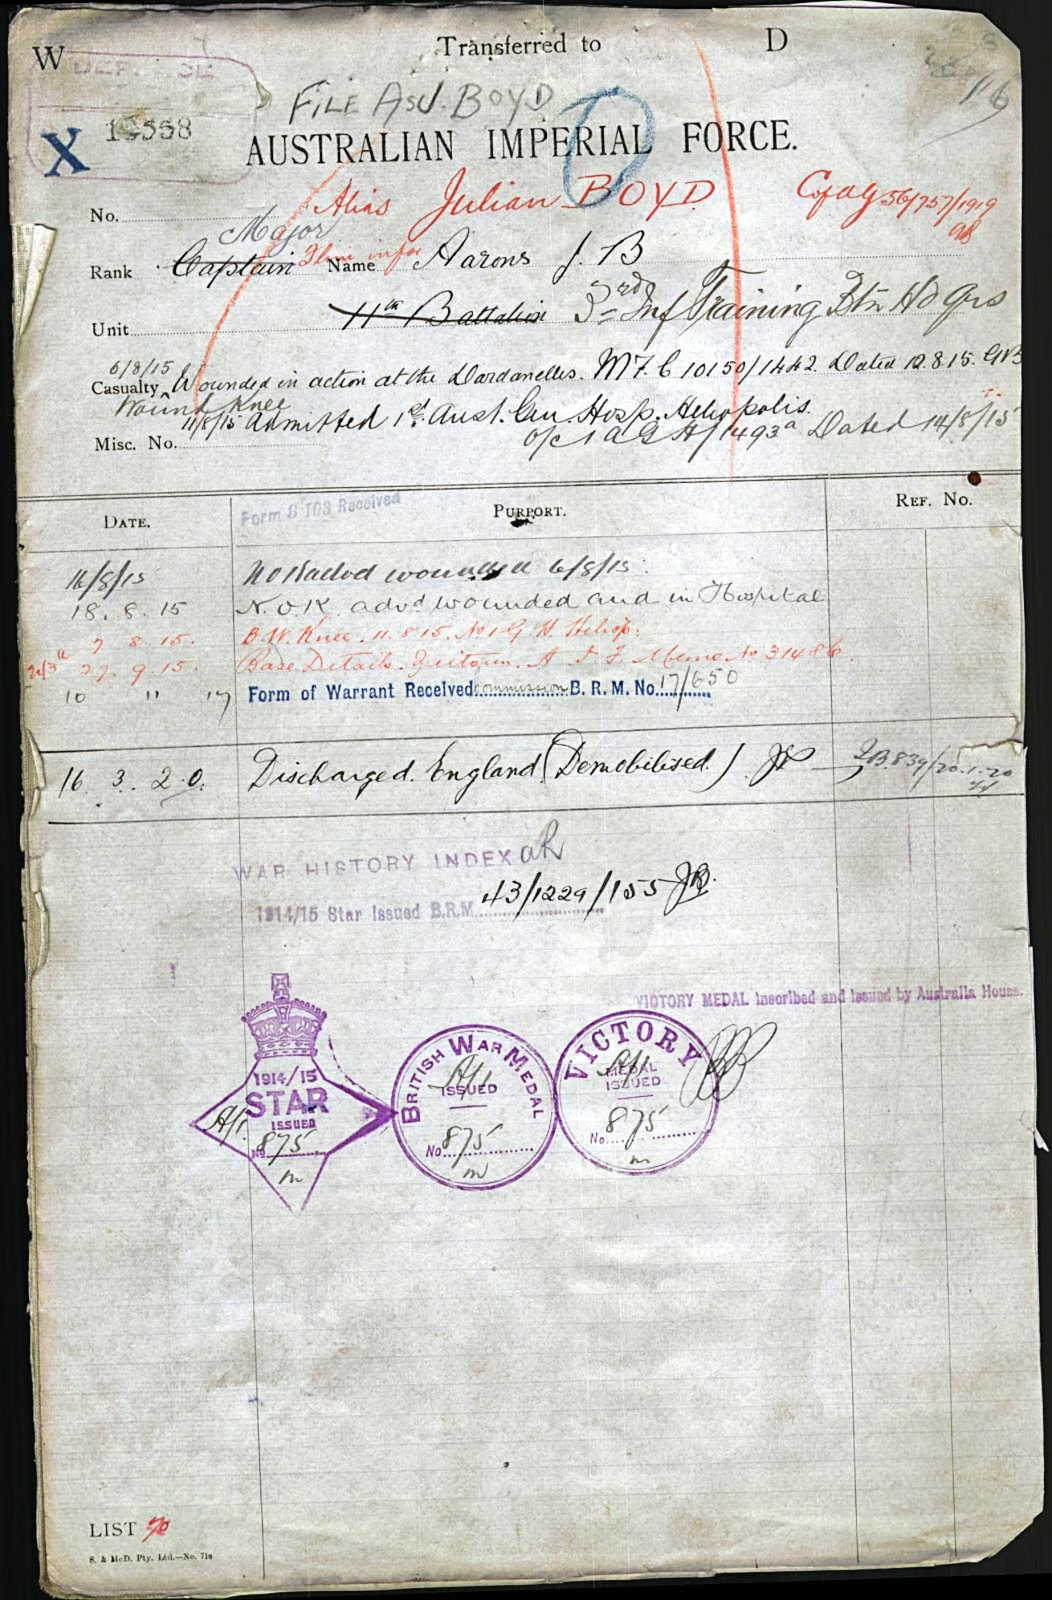 W Transferred to D
FILE AS J. BOYD
X
AUSTRALIAN IMPERIAL FORCE.
No. Alias Julian BOYD C of A G 56/757/1919
Major
Rank Captain Name Aarons J. B
Unit 11th Battalion 3rd Inf Training Btn Hd Qrs
6/8/15
Casualty Wounded in action at the Dardanelles. M.F.C 10150/1442 Dated 12.8.15.
Wound Knee
11/8/15 admitted 1st Aust. Gen. Hosp. Heliopolis
Misc. No. o/c 1 A G H/1493a Dated 14/8/15
DATE. Form B 103 Received PURPORT. REF. No.
wounded 6/8/15.
18. 8. 15 N.O.K. advd wounded and in Hospital
B.W. Knee. 11.8.15. No 1 G H. Heliop.
27. 9. 15. Base Details. Zeitoun. A I F Memo No 31486.
10 11 17 Form of Warrant Received commission B. R. M. No. 17/650
16. 3. 20. Discharged. England (Demobilised.)
WAR HISTORY INDEX
1914/15 Star Issued B.R.M. 43/1229/155
VICTORY MEDAL inscribed and issued by Australia House.
1914/15
STAR
ISSUED
No. 875
BRITISH WAR MEDAL
ISSUED
No. 875
VICTORY
MEDAL
ISSUED
No. 875
LIST
S. & McD. Pty. Ltd.—No. 718